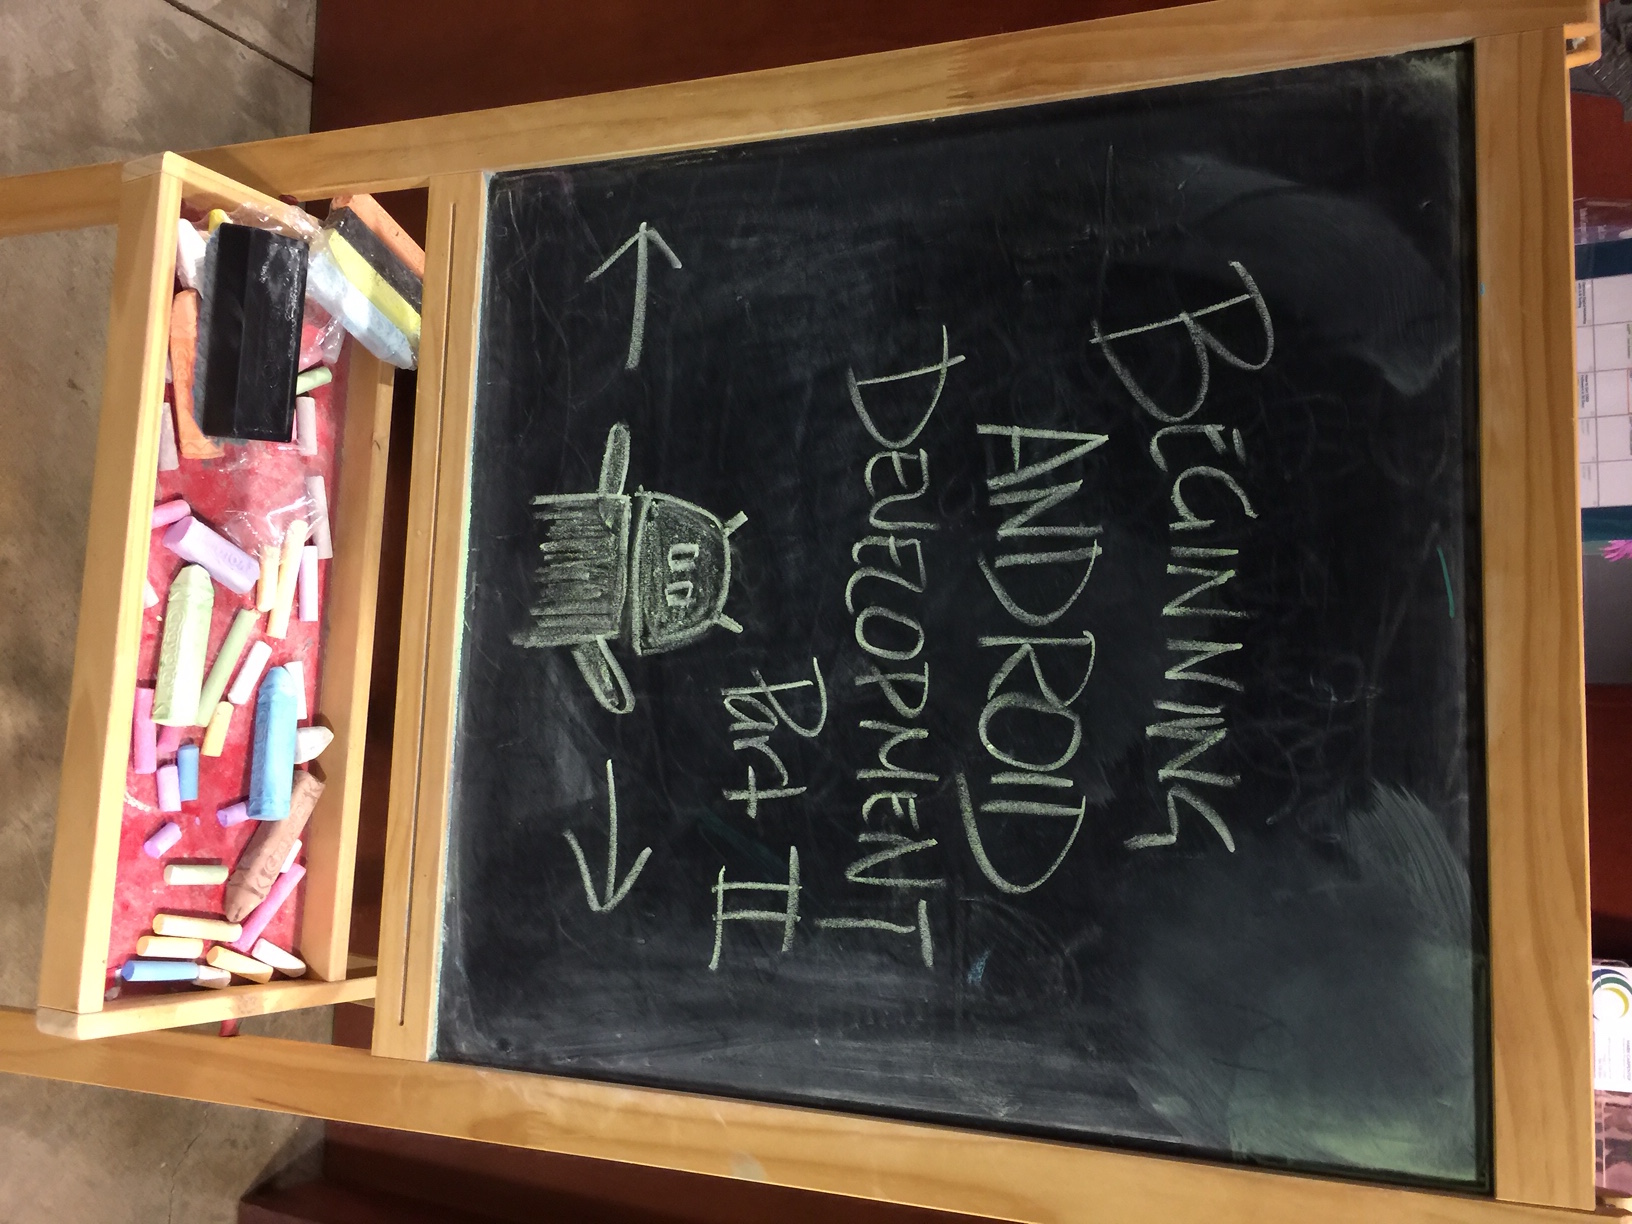 BEGINNING
ANDROID
DEVELOPMENT
Part II